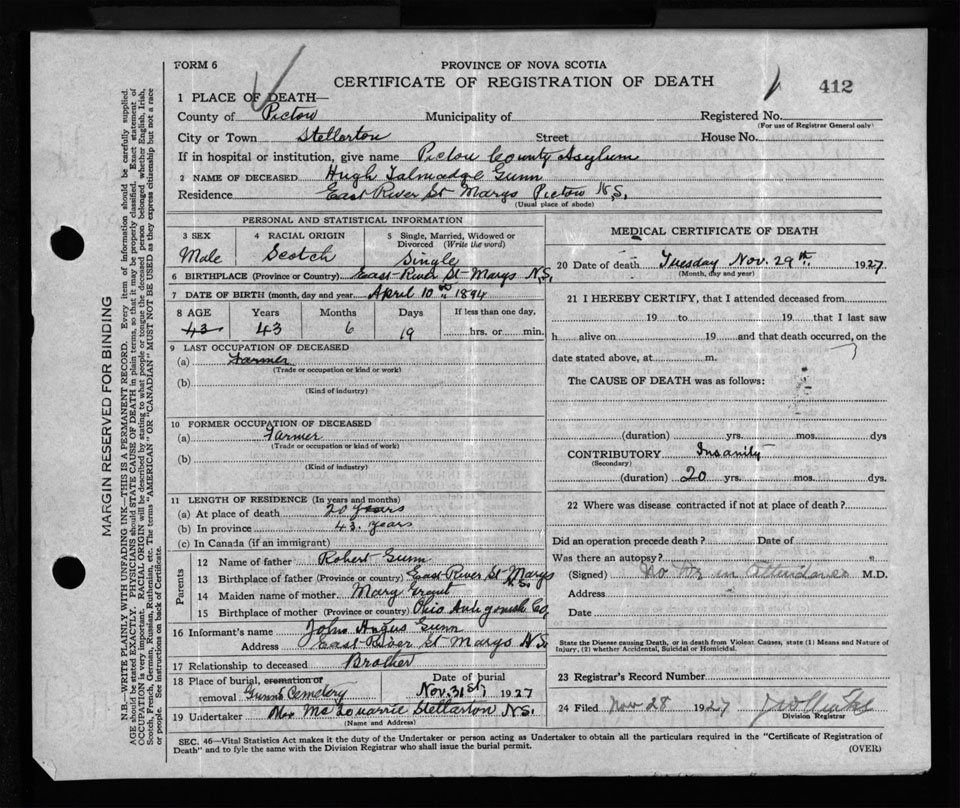 FORM 6
PROVINCE OF NOVA SCOTIA
CERTIFICATE OF REGISTRATION OF DEATH
412
1 PLACE OF DEATH—
County of Pictou Municipality of Registered No.
(For use of Registrar General only)
City or Town Stellarton Street House No.
If in hospital or institution, give name Pictou County Asylum
2 NAME OF DECEASED Hugh Talmadge Gunn
Residence East River St Marys Pictou N.S.
(Usual place of abode)
PERSONAL AND STATISTICAL INFORMATION
3 SEX
Male
4 RACIAL ORIGIN
Scotch
5 Single, Married, Widowed or Divorced (Write the word)
Single
6 BIRTHPLACE (Province or Country) East River St Marys N.S.
7 DATE OF BIRTH (month, day and year) April 10th 1894
8 AGE Years Months Days If less than one day,
43 43 6 19 hrs. or min.
9 LAST OCCUPATION OF DECEASED
(a) Farmer
(Trade or occupation or kind or work)
(b)
(Kind of industry)
10 FORMER OCCUPATION OF DECEASED
(a) Farmer
(Trade or occupation or kind of work)
(b)
(Kind of industry)
11 LENGTH OF RESIDENCE (In years and months)
(a) At place of death 20 years
(b) In province 43. years
(c) In Canada (if an immigrant)
Parents
12 Name of father Robert Gunn
13 Birthplace of father (Province or country) East River St Marys N.S.
14 Maiden name of mother Mary
15 Birthplace of mother (Province or country) Ohio Antigonish Co,
16 Informant's name John Angus Gunn
Address East River St Marys N.S
17 Relationship to deceased Brother
18 Place of burial, cremation or removal Gunns Cemetery
Date of burial
Nov. 31st, 1927
19 Undertaker McQuarrie Stellarton N.S.
(Name and Address)
MEDICAL CERTIFICATE OF DEATH
20 Date of death Tuesday Nov. 29th. 1927
(Month, day and year)
21 I HEREBY CERTIFY, that I attended deceased from
19 to 19 that I last saw
h alive on 19 and that death occurred, on the
date stated above, at m.
The CAUSE OF DEATH was as follows:
(duration) yrs. mos. dys
CONTRIBUTORY Insanity
(Secondary)
(duration) 20 yrs. mos. dys.
22 Where was disease contracted if not at place of death?
Did an operation precede death? Date of
Was there an autopsy?
(Signed) No Dr in attendance M.D.
Address
Date
State the Disease causing Death, or in death from Violent Causes, state (1) Means and Nature of
Injury, (2) whether Accidental, Suicidal or Homicidal.
23 Registrar's Record Number
24 Filed Nov 28 1927
Division Registrar
SEC. 46—Vital Statistics Act makes it the duty of the Undertaker or person acting as Undertaker to obtain all the particulars required in the "Certificate of Registration of
Death" and to fyle the same with the Division Registrar who shall issue the burial permit.
(OVER)
MARGIN RESERVED FOR BINDING
N.B.—WRITE PLAINLY WITH UNFADING INK—THIS IS A PERMANENT RECORD. Every item of information should be carefully supplied.
AGE should be stated EXACTLY. PHYSICIANS should STATE CAUSE OF DEATH in plain terms, so that it may be properly classified. Exact statement of
OCCUPATION is very important. RACIAL ORIGIN will be described by stating to what people or tongue the deceased person belonged whether English, Irish,
Scotch, French, German, Russian, Ruthenian, etc. The terms "AMERICAN" OR "CANADIAN" MUST NOT BE USED as they express citizenship but not a race
or people. See instructions on back of Certificate.